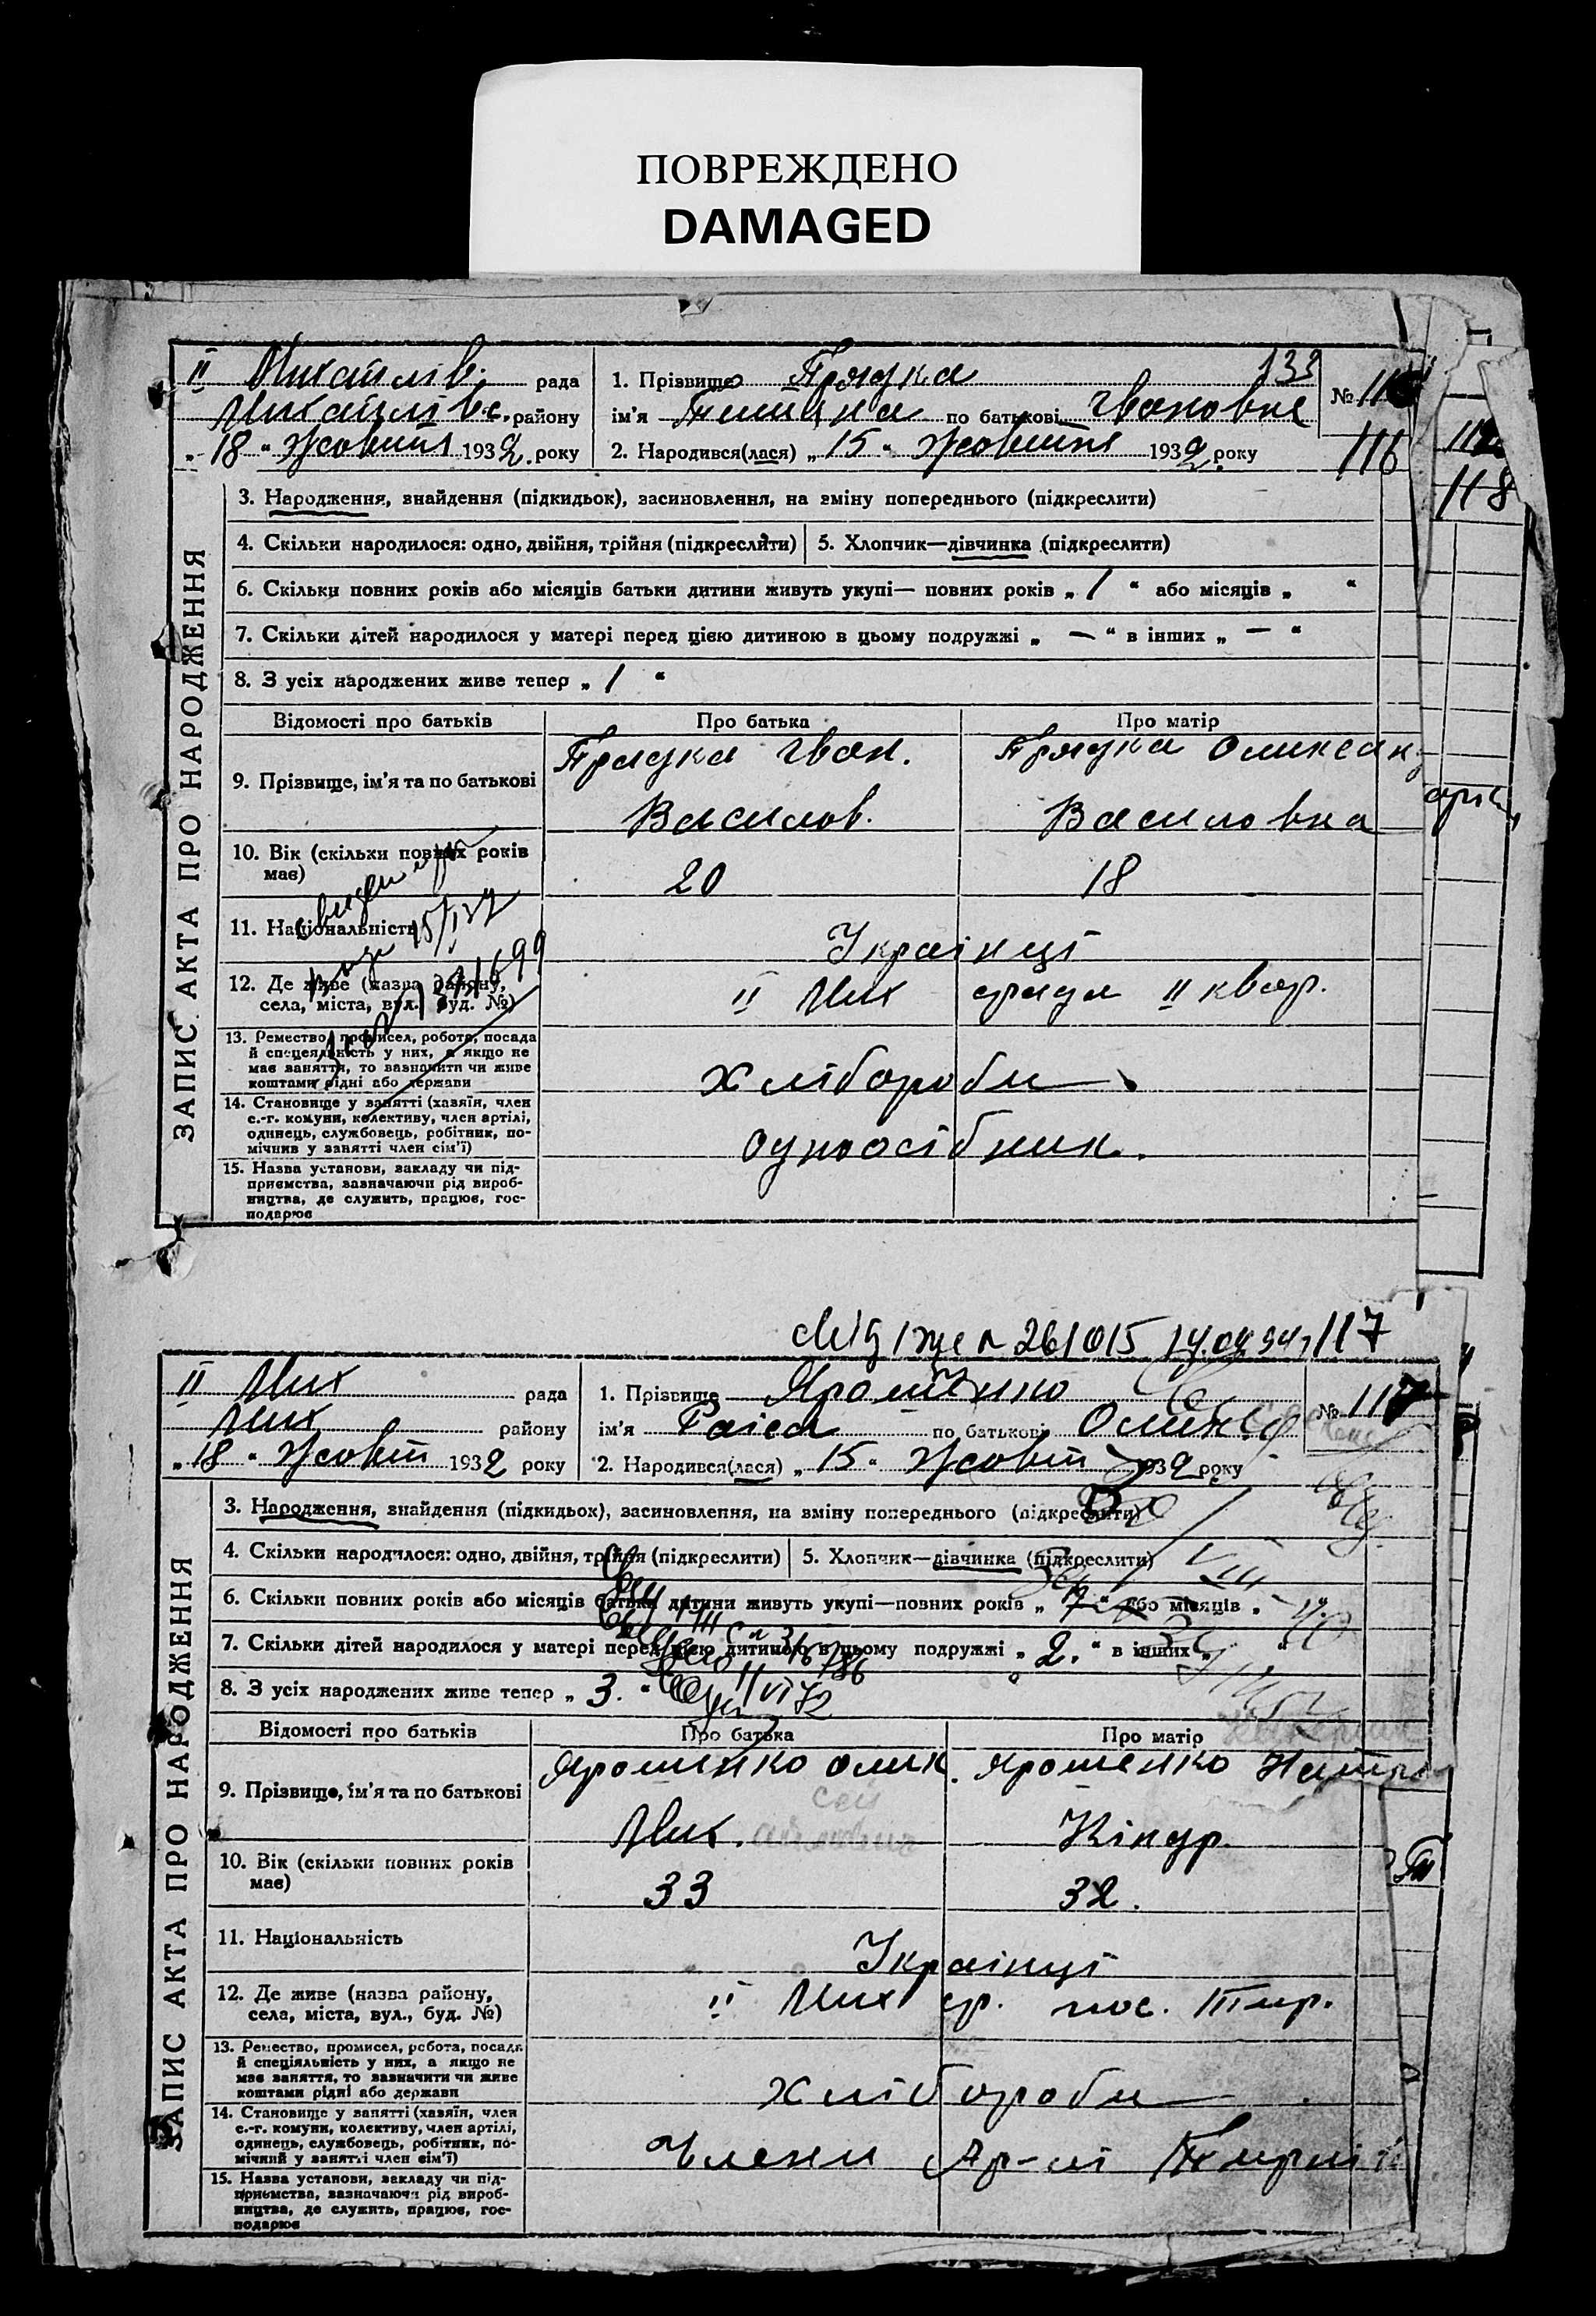 ПОВРЕЖДЕНО
DAMAGED
II Михайлів. рада
Михайлівс. району
„ 18 “ Жовтня 1932 року
1. Прізвище Прядка 133
ім'я по батькові Івановна
2. Народився(лася) „ 15 “ Жовтня 1932 року
№ 116
116
112
118
ЗАПИС АКТА ПРО НАРОДЖЕННЯ
3. Народження, знайдення (підкидьок), засиновлення, на зміну попереднього (підкреслити)
4. Скільки народилося: одно, двійня, трійня (підкреслити) 5. Хлопчик—дівчинка (підкреслити)
6. Скільки повних років або місяців батьки дитини живуть укупі— повних років „ 1 “ або місяців „ “
7. Скільки дітей народилося у матері перед цією дитиною в цьому подружжі „ — “ в інших „ — “
8. З усіх народжених живе тепер „ 1 “
Відомості про батьків Про батька Про матір
9. Прізвище, ім'я та по батькові
Прядка Іван. Прядка Оликсан
Василов. Василовна
10. Вік (скільки повних років
має)
20 18
11. Національність
Українці
12. Де живе (назва району,
села, міста, вул. буд. №)
II Мих срада II квар.
13. Ремество, промисел, робота, посада
й спецеяльність у них, а якщо не
має заняття, то зазначити чи живе
коштами рідні або держави
Хлібороби
14. Становище у занятті (хазяїн, член
с.-г. комуни, колективу, член артілі,
одинець, службовець, робітник, по-
мічнив у занятті член сім'ї)
Одноосібник.
15. Назва установи, закладу чи під-
приємства, зазначаючи рід вироб-
ництва, де служить, працює, гос-
подарює
261015 117
II Мих рада
Мих району
„ 18 “ Жовт 1932 року
1. Прізвище Ярошенко
ім'я Раїса по батькові Олик.
2. Народився(лася) „ 15 “ Жовт 1932 року
№ 117
ЗАПИС АКТА ПРО НАРОДЖЕННЯ
3. Народження, знайдення (підкидьох), засиновлення, на зміну попереднього (підкреслити)
4. Скільки народилося: одно, двійня, трійня (підкреслити) 5. Хлопчик—дівчинка (підкреслити)
6. Скільки повних років або місяців батьки дитини живуть укупі—повних років „ “ або місяців „ “
7. Скільки дітей народилося у матері перед цією дитиною в цьому подружжі „ 2. “ в інших „ “
8. З усіх народжених живе тепер „ 3. “
Відомості про батьків Про батька Про матір
9. Прізвище, їм'я та по батькові
Ярошинко Олик. Ярошенко
Мих. Кіндр.
10. Вік (скільки повних років
має)
33 32.
11. Національність
Українці
12. Де живе (назва району,
села, міста, вул., буд. №)
II Мих ср. пос.
13. Ремество, промисел, робота, посада
й спеціяльність у них, а якщо не
має заняття, то зазначити чи живе
коштами рідні або держави
Хлібороби
14. Становище у занятті (хазяїн, член
с.-г. комуни, колективу, член артілі,
одинець, службовець, робітник, по-
мічний у занятті член сім'ї)
Члени Ар-лі
15. Назва установи, закладу чи під-
приємства, зазначаючи рід вироб-
ництва, де служить, працює, гос-
подарює